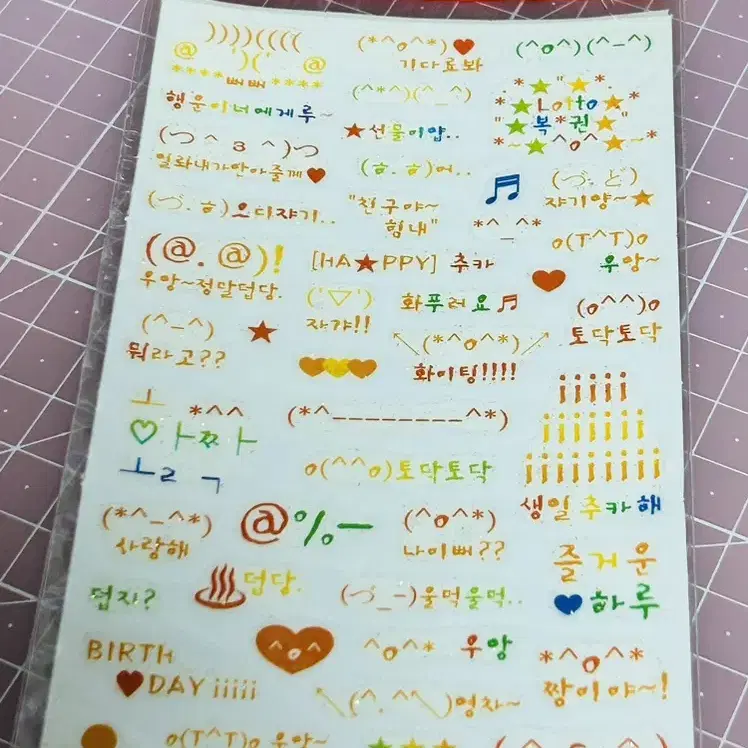 ))))((((
@ )( @
****ㅃㅃ****
행운이너에게루~
(*^o^*)♥
기다료봐
(^o^)(^-^)
(^*^)(^_^)
★선물이얍..
*★*"★*.
*★Lotto★*
"★복*권★"
*~★^o^★~*
(つ^3^)つ
일롸내가안아줄께♥
(ㅎ.ㅎ)어..
♬
(づ.ど)
쟈기양~★
(づ.ㅎ)오디쟈기..
"친구야~
힘내"
*^_^*
o(T^T)o
우앙~
(@.@)!
우앙~정말덥당.
[HA★PPY] 추카
♥
('▽')
자갸!!
화푸러요♬
(o^^)o
토닥토닥
(^_^)
뭐라고??
★
♥♥♥
↖(*^o^*)↗
화이팅!!!!
ㅗ *^^
♡ㅏㅉㅏ
ㅗㄹㄱ
(*^_________^*)
o(^^o)토닥토닥
iiiii
iiiiiii
iiiiiiiii
생일추카해
(*^_^*)
사랑해
@%-
(^o^*)
나이뻐??
즐거운
♥하루
덥지?
♨덥당.
(づ_-)울먹울먹..
BIRTH
♥DAY iiiii
^o^
^o^* 우앙
*^o^*
짱이야~!
＼(^.^＼)영차~
o(T^T)o 우앙~
★★★